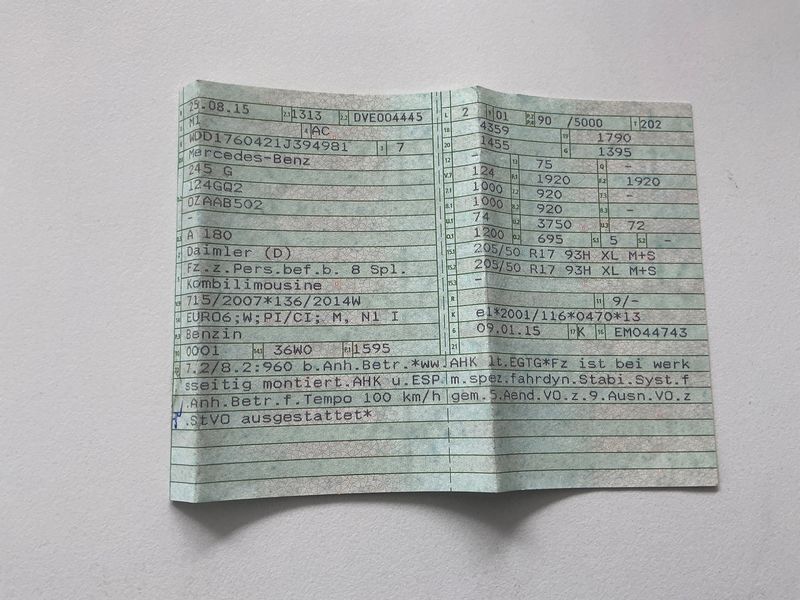 29.08.15 2.1 1313 2.2 DVE004445
M1 4 AC
WDD1760421J394981 3 7
Mercedes-Benz
245 G
124GQ2
0ZAAB502
-
A 180
Daimler (D)
Fz.z.Pers.bef.b. 8 Spl.
Kombilimousine
715/2007*136/2014W
EURO6;W;PI/CI; M, N1 I
Benzin
0001 14.1 36W0 P.1 1595
L 2 9 01 90 /5000 T 202
4359 19 1790
1455 G 1395
- 13 75 Q -
124 1920 1920
1000 920 -
1000 920 -
74 3750 72
1200 695 S.1 5 S.2 -
205/50 R17 93H XL M+S
205/50 R17 93H XL M+S
-
R 11 9/-
K e1*2001/116*0470*13
6 09.01.15 17 K 16 EM044743
21
7.2/8.2:960 b.Anh.Betr.*ww.AHK lt.EGTG*Fz ist bei werk
sseitig montiert.AHK u.ESP m.spez.fahrdyn.Stabi.Syst.f
.Anh.Betr.f.Tempo 100 km/h gem.5.Aend.VO.z.9.Ausn.VO.z
.StVO ausgestattet*